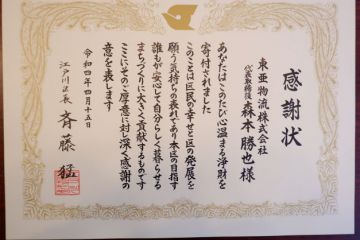 感謝状
東亜物流株式会社
代表取締役 森本勝也様
あなたはこのたび心温まる浄財を
寄付されました
このことは区民の幸せと区の発展を
願う気持ちの表れであり本区の目指す
誰もが安心して自分らしく暮らせる
まちづくりに大きく貢献するものです
ここにそのご厚意に対し深く感謝の
意を表します
令和四年四月十五日
江戸川区長 斉藤猛